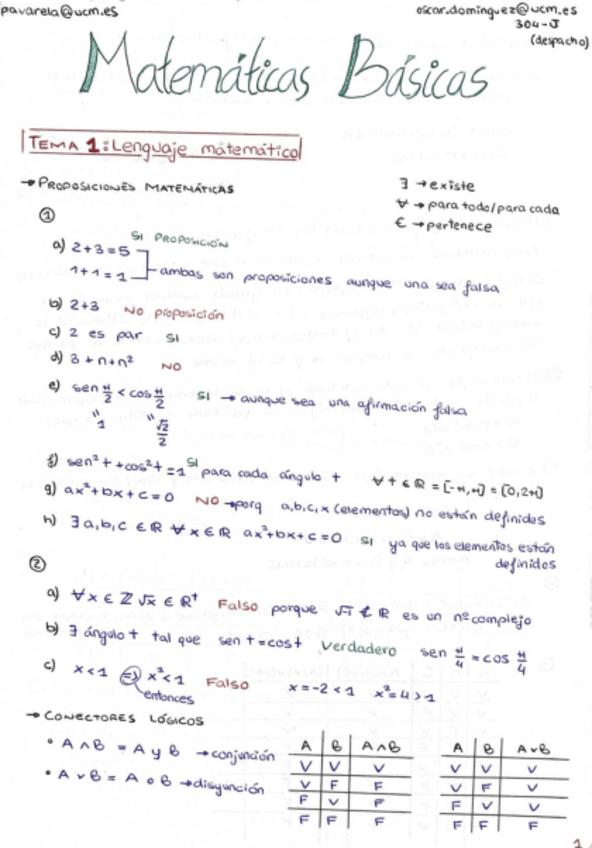 pavarela@ucm.es
oscar.dominguez@ucm.es
304-J
(despacho)
Matemáticas Básicas
TEMA 1: Lenguaje matemático
→ PROPOSICIONES MATEMÁTICAS
∃ → existe
∀ → para todo/para cada
€ → pertenece
①
a) 2+3=5 SI PROPOSICIÓN
1+1=1 ambas son proposiciones aunque una sea falsa
b) 2+3 NO proposición
c) 2 es par SI
d) 3+n+n² NO
e) sen π/2 < cos π/2 SI → aunque sea una afirmación falsa
" 1 " √2/2
f) sen²t+cos²t=1 SI para cada ángulo t ∀t∈ℝ=[-π,π]=[0,2π]
g) ax²+bx+c=0 NO → porq a,b,c,x (elementos) no están definidos
h) ∃a,b,c ∈ℝ ∀x∈ℝ ax²+bx+c=0 SI ya que los elementos están
definidos
②
a) ∀x∈ℤ √x∈ℝ⁺ Falso porque √-1 ∉ ℝ es un nº complejo
b) ∃ ángulo t tal que sen t=cos t Verdadero sen π/4 = cos π/4
c) x<1 ⇒ x²<1 Falso x=-2<1 x²=4>1
entonces
→ CONECTORES LÓGICOS
• A∧B = A y B → conjunción
• A∨B = A o B → disyunción
A B A∧B
V V V
V F F
F V F
F F F
A B A∨B
V V V
V F V
F V V
F F F
1